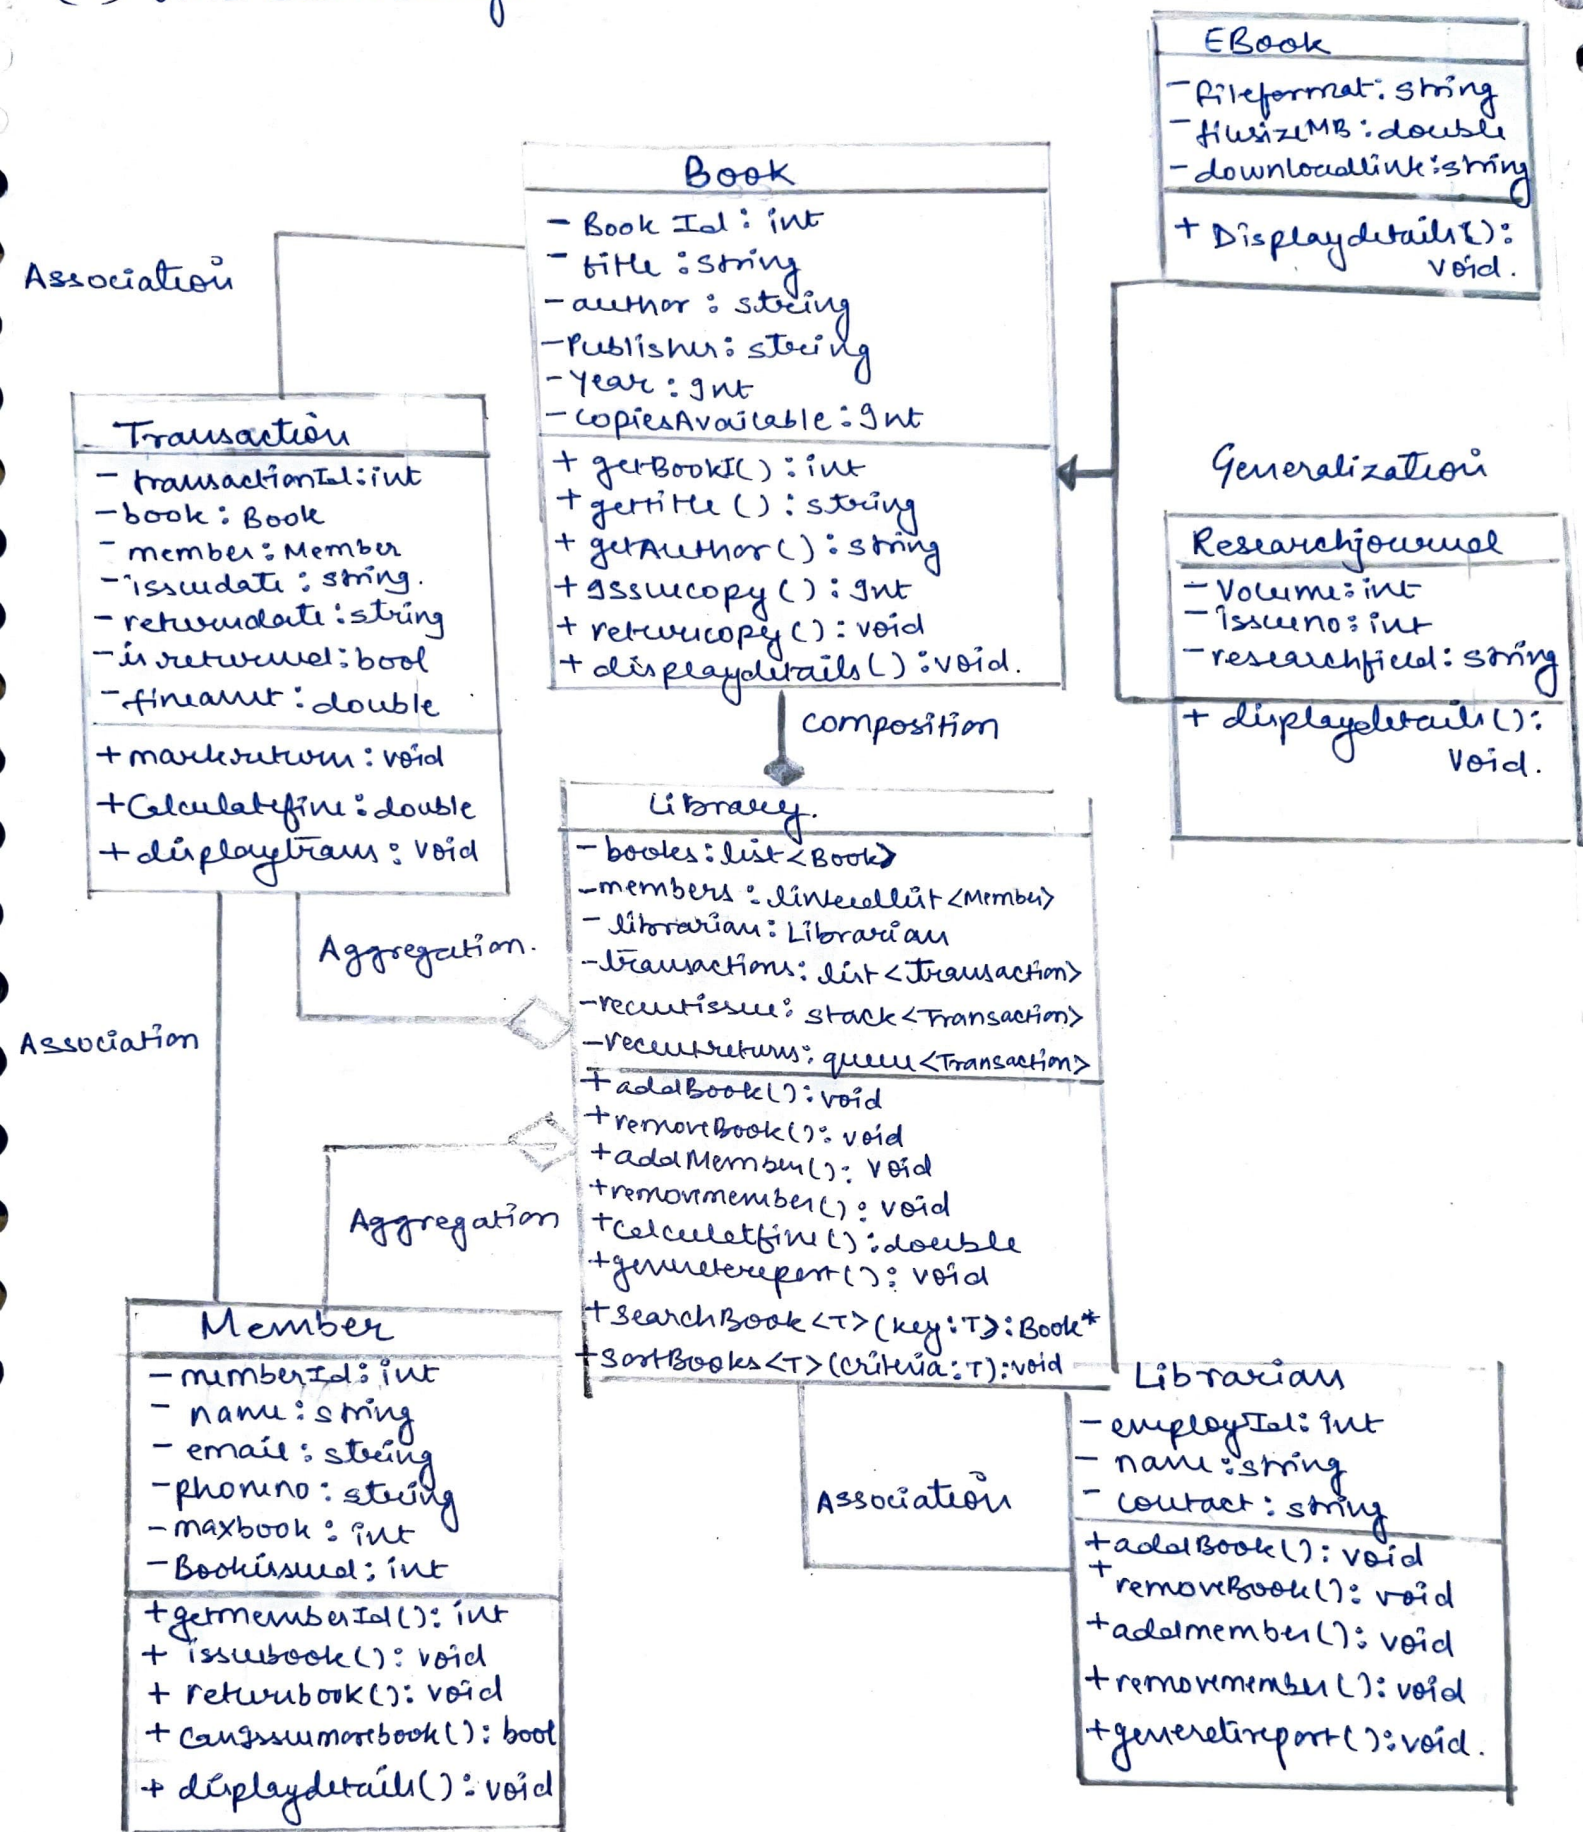 EBook
- fileformat: string
- filesizeMB: double
- downloadlink: string
+ Displaydetails():
void.
Book
- Book Id: int
- title: string
- author: string
- Publisher: string
- Year: Int
- copiesAvailable: Int
+ getBookI(): int
+ gettitle(): string
+ getAuthor(): string
+ Issuecopy(): Int
+ returncopy(): void
+ displaydetails(): void.
Association
Transaction
- transactionId: int
- book: Book
- member: Member
- issuedate: string.
- returndate: string
- isreturned: bool
- fineamt: double
+ markreturn: void
+ Calculatefine: double
+ displaytrans: void
Generalization
Researchjournal
- Volume: int
- issueno: int
- researchfield: string
+ displaydetails():
void.
composition
Library.
- books: list<Book>
- members: linkedlist<Member>
- librarian: Librarian
- transactions: list<Transaction>
- recentissue: stack<Transaction>
- recentreturns: queue<Transaction>
+ addBook(): void
+ removeBook(): void
+ addMember(): void
+ removemember(): void
+ calculatfine(): double
+ generatereport(): void
+ searchBook<T>(key: T): Book*
+ SortBooks<T>(criteria: T): void
Aggregation.
Association
Aggregation
Member
- memberId: int
- name: string
- email: string
- phoneno: string
- maxbook: int
- Bookissued: int
+ getmemberId(): int
+ issuebook(): void
+ returnbook(): void
+ canIssuemorebook(): bool
+ displaydetails(): void
Association
Librarian
- employId: int
- name: string
- contact: string
+ addBook(): void
+ removeBook(): void
+ addmember(): void
+ removemember(): void
+ generatereport(): void.